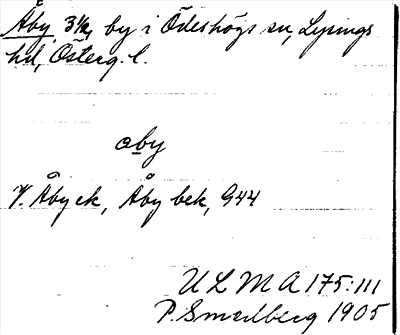 Åby 3 1/2, by i Ödeshögs sn, Lysings
hd, Österg. l.
aby
V. Åby ek, Åby bek, 944
ULMA 175:111
P. Smedberg 1905